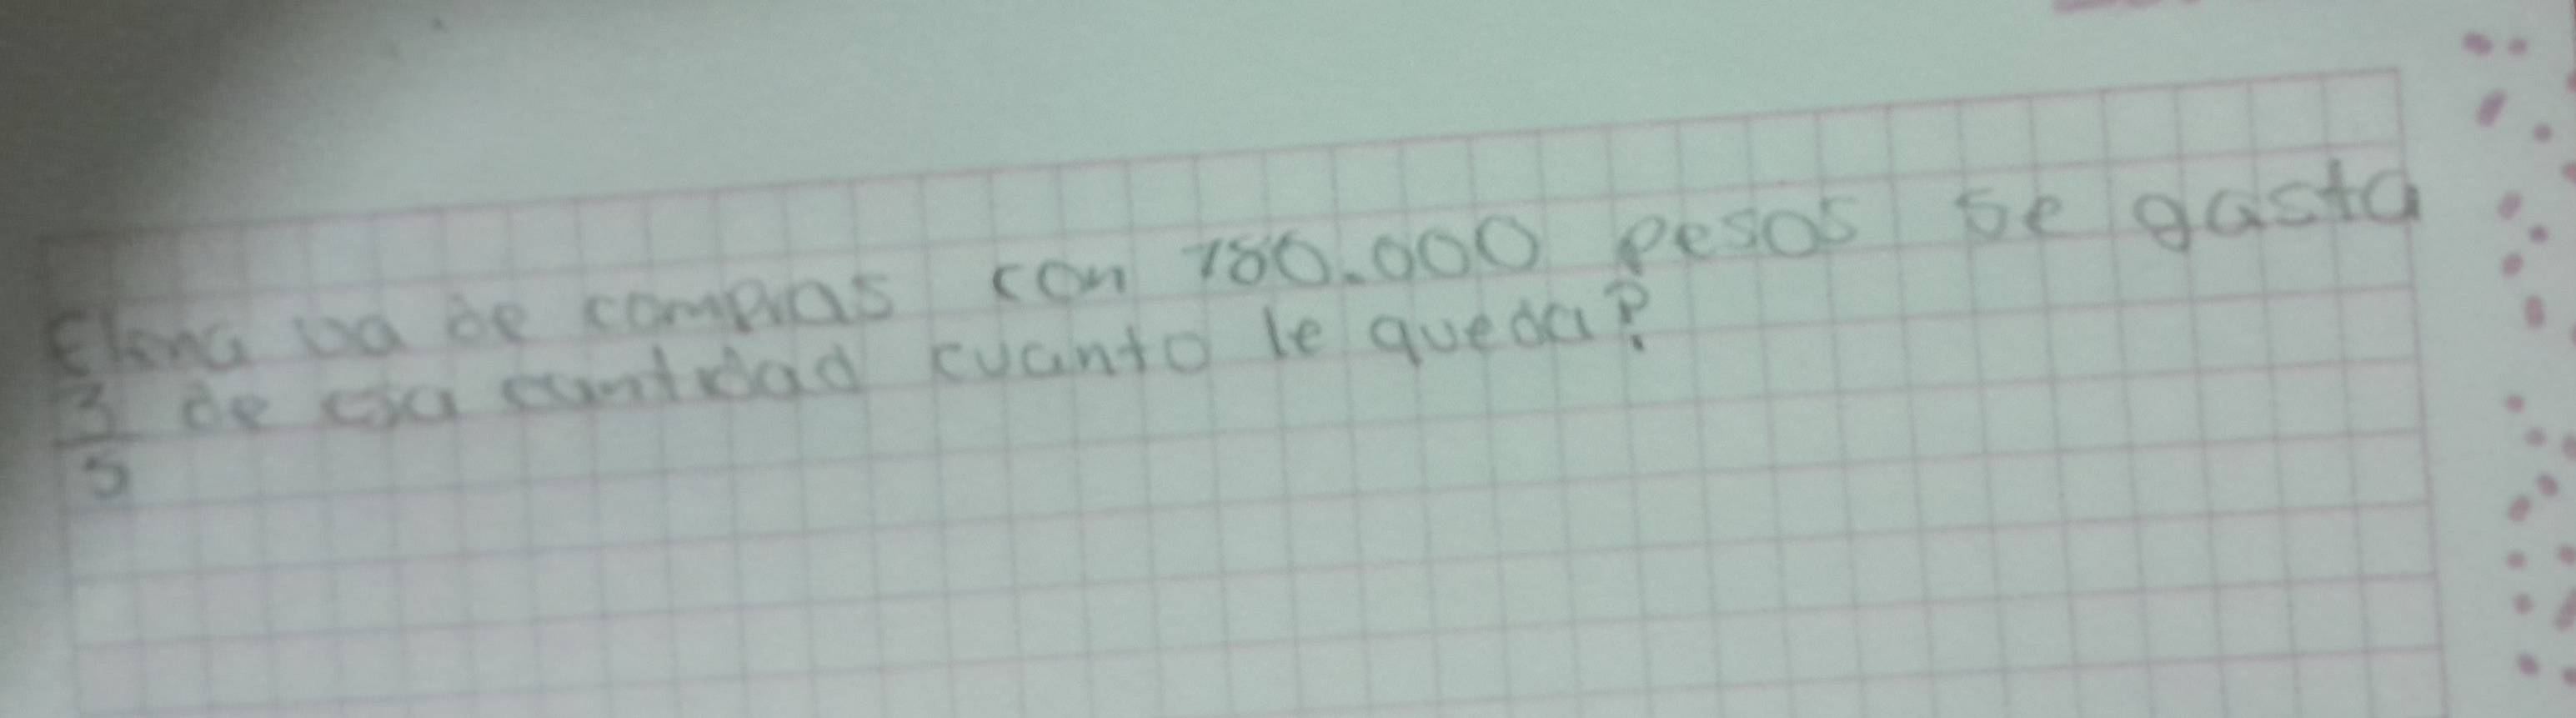 Elena va de compras con 180.000 pesos se gasta
3/5 de esa cantidad cuanto le queda?